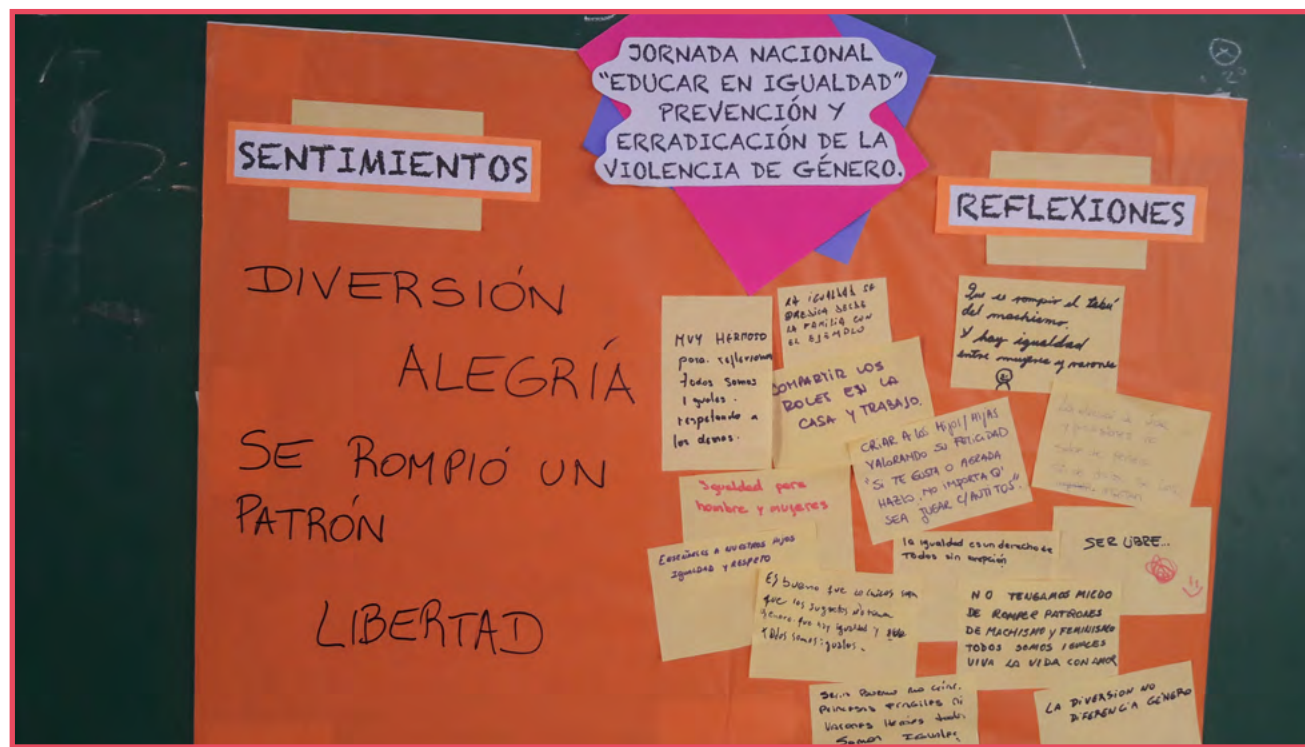 JORNADA NACIONAL
"EDUCAR EN IGUALDAD"
PREVENCIÓN Y
ERRADICACIÓN DE LA
VIOLENCIA DE GÉNERO.
SENTIMIENTOS
DIVERSIÓN
ALEGRÍA
SE ROMPIÓ UN
PATRÓN
LIBERTAD
REFLEXIONES
MUY HERMOSO
para reflexionar
todos somos
iguales.
respetando a
los demas.
LA IGUALDAD SE
PREDICA DESDE
LA FAMILIA CON
EL EJEMPLO
Que es rompir el tabú
del machismo.
Y hay igualdad
entre mujeres y varones
COMPARTIR LOS
ROLES EN LA
CASA Y TRABAJO.
CRIAR A LOS HIJOS/HIJAS
VALORANDO SU FELICIDAD
"SI TE GUSTA O AGRADA
HAZLO, NO IMPORTA Q'
SEA JUGAR C/AUTITOS".
Igualdad para
hombre y mujeres
ENSEÑARLES A NUESTROS HIJOS
IGUALDAD Y RESPETO
la igualdad es un derecho de
Todos sin
SER LIBRE...
Es bueno que
que los juguetes no
genero. que hay igualdad y
todos somos iguales.
NO TENGAMOS MIEDO
DE ROMPER PATRONES
DE MACHISMO Y FEMINISMO
TODOS SOMOS IGUALES
VIVA LA VIDA CON AMOR
Princesas fragiles ni
Varones
Somos Iguales
LA DIVERSION NO
DIFERENCIA GÉNERO